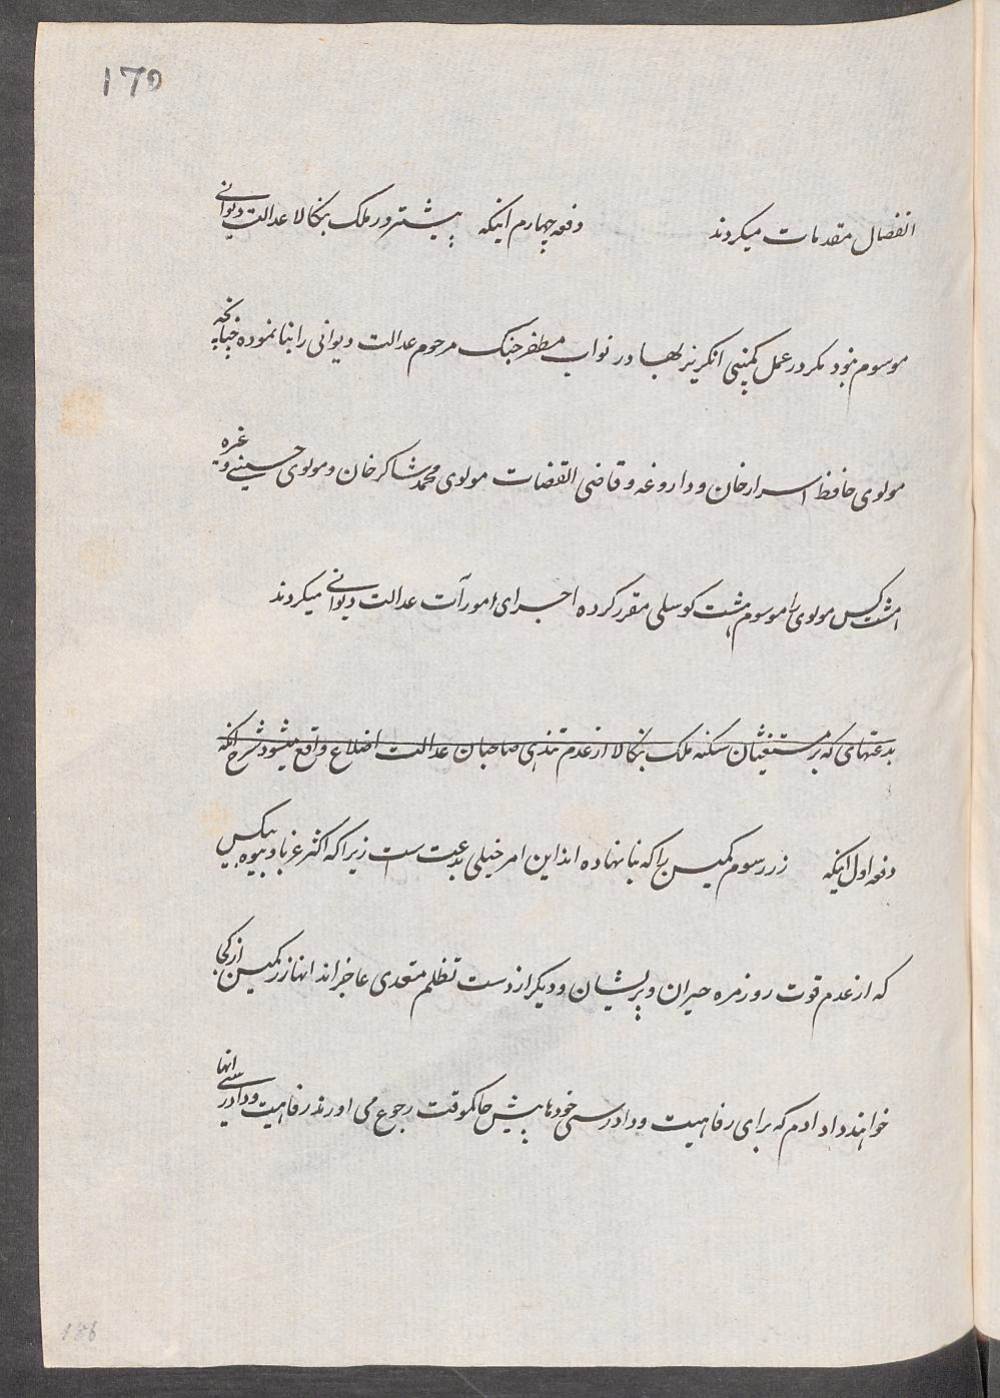 170
انفصال مقدمات میکردند دفعه چهارم اینکه پیشتر در ملک بنکالا عدالت دیوانی
موسوم نبود مکر در عمل کمپنی انکریز بهادر نواب مظفر جنک مرحوم عدالت دیوانی را بنا نموده چنانچه
مولوی حافظ اسرار خان و داروغه و قاضی القضات مولوی محمد شاکر خان و مولوی حسینی وغره
هشت کس مولوی را موسوم هشت کوسلی مقرر کرده اجرای امورآت عدالت دیوانی میکردند
بدعتهای که بر مستغیثان سکنه ملک بنکالا از عدم تندهی صاحبان عدالت اضلاع واقع میشود شرح انکه
دفعه اول اینکه زر رسوم کمیسن را که بنا نهاده اند این امر خیلی بدعت ست زیرا که اکثر غربا و بیوه بیکس
که از عدم قوت روزمره حیران و پریشان و دیکر از دست تظلم متعدی عاجز اند انها زر کمیسن از کجا
خواهند داد ادم که برای رفاهیت و دادرسی خودها پیش حاکموقت رجوع می اورند رفاهیت و دادرسی انها
186